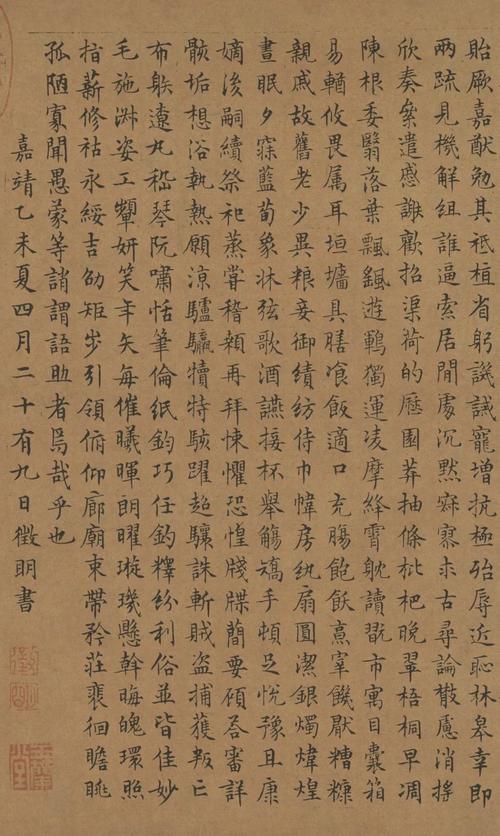 貽厥嘉猷勉其祗植省躬譏誡寵增抗極殆辱近恥林皋幸即
兩疏見機解組誰逼索居閒處沉默寂寥求古尋論散慮消搖
欣奏累遣慼謝歡招渠荷的歷園莽抽條枇杷晚翠梧桐早凋
陳根委翳落葉飄颻遊鵾獨運凌摩絳霄躭讀翫市寓目囊箱
易輶攸畏属耳垣墻具膳飡飯適口充腸飽飫烹宰饑厭糟糠
親戚故舊老少異粮妾御績紡侍巾帷房紈扇圓潔銀燭煒煌
晝眠夕寐藍荀象牀弦歌酒讌接杯舉觴矯手頓足悅豫且康
嫡後嗣續祭祀蒸甞稽顙再拜悚懼恐惶牋牒簡要顧答審詳
骸垢想浴執熱願凉驢騾犢特駭躍超驤誅斬賊盜捕獲叛亡
布躲遼丸嵇琴阮嘯恬筆倫紙鈞巧任釣釋紛利俗並皆佳妙
毛施淑姿工顰妍笑年矢每催曦暉朗曜璇璣懸斡晦魄環照
指薪修祜永綏吉劭矩步引領俯仰廊廟束帶矜莊裴徊瞻眺
孤陋寡聞愚蒙等誚謂語助者焉哉乎也
嘉靖乙未夏四月二十有九日徵明書
徵明
玉蘭堂